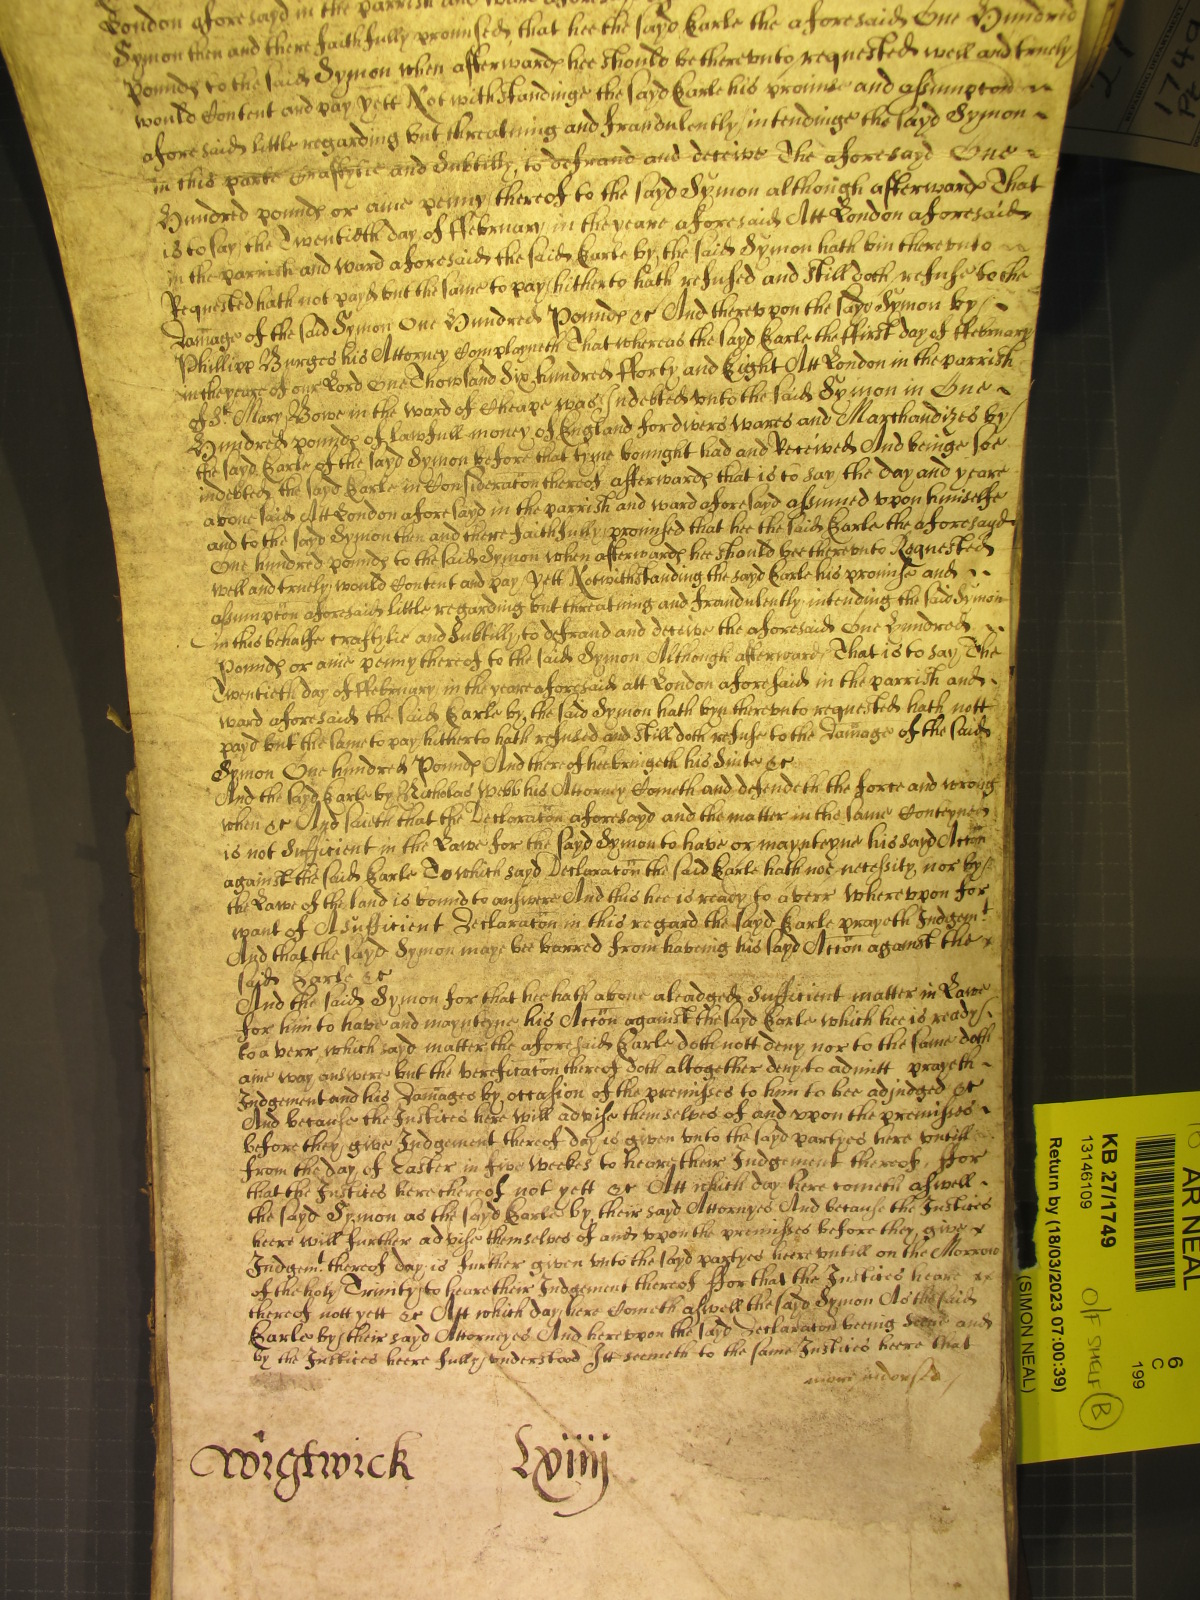 London aforesayd in the parrish and ward aforesayd
Symon then and there faithfully promised, that hee the sayd Earle the aforesaid One Hundred
Pounds to the said Symon when afterwards hee should be thereunto requested well and truely
would Content and pay Yett Notwithstandinge the sayd Earle his promise and assumpcon
aforesaid little regarding but threatning and fraudulently intendinge the sayd Symon
in this parte Craftylie and Subtilly, to defraud and deceive The aforesayd One
Hundred pounds or anie penny thereof to the sayd Symon although afterwards That
is to say the Twentieth day of ffebruary in the yeare aforesaid Att London aforesaid
in the parrish and Ward aforesaid the said Earle by the said Symon hath bin thereunto
Requested hath not payd but the same to pay hitherto hath refused and still doth refuse to the
Damage of the said Symon One Hundred Pounds &c And thereupon the sayd Symon by
Phillipp Burges his Attorney Complayneth That whereas the sayd Earle the ffirst day of ffebruary
in the yeare of our Lord One Thowsand Six hundred fforty and Eight Att London in the parrish
of St Mary Bowe in the ward of Cheape was Indebted unto the said Symon in One
Hundred pounds of lawfull money of England for divers wares and Marchandizes by
the sayd Earle of the sayd Symon before that tyme bought had and Received And beinge soe
indebted the sayd Earle in Consideracon thereof afterwards that is to say the day and yeare
above said Att London aforesayd in the parrish and ward aforesayd assumed upon himselfe
and to the sayd Symon then and there faithfully promised that hee the said Earle the aforesayd
One hundred pounds to the said Symon when afterwards hee should bee thereunto Requested
well and truely would Content and pay Yett Notwithstanding the sayd Earle his promise and
assumpcon aforesaid little regarding but threatning and fraudulently intending the said Symon
in this behalfe craftylie and Subtilly to defraud and deceive the aforesaid One Hundred
Pounds or anie penny thereof to the said Symon Although afterwards That is to say The
Twentieth day of ffebruary in the yeare aforesaid att London aforesaid in the parrish and
ward aforesaid the said Earle by the said Symon hath byn thereunto requested hath nott
payd but the same to pay hitherto hath refused and still doth refuse to the Damage of the said
Symon One hundred Pounds And thereof hee bringeth his Suite &c
And the sayd Earle by Nicholas Webb his Attorney Cometh and defendeth the force and wrong
when &c And saieth that the Declaracon aforesayd and the matter in the same Conteyned
is not Sufficient in the Lawe for the sayd Symon to have or maynteyne his sayd Accon
against the said Earle To which sayd Declaracon the said Earle hath noe necessity nor by
the Lawe of the land is bound to answere And this hee is ready to averr Whereupon for
want of A Sufficient Declaracon in this regard the sayd Earle prayeth Judgemt
And that the sayd Symon maye bee barred from haveing his sayd Accon against the
said Earle &c
And the said Symon for that hee hath above aleadged Sufficient matter in Lawe
for him to have and maynteyne his Accon against the sayd Earle which hee is ready
to averr which sayd matter the aforesaid Earle doth nott deny nor to the same doth
anie way answere but the verificacon thereof doth altogether deny to admitt prayeth
Judgement and his Damages by occasion of the premisses to him to bee adjudged &c
And because the Justices here will advise themselves of and upon the premisses
before they give Judgement thereof day is given unto the sayd partyes here untill
from the day of Easter in five Weekes to heare their Judgement thereof ffor
that the Justices here thereof not yett &c Att which day here cometh aswell
the sayd Symon as the sayd Earle by their sayd Attornyes And because the Justices
heere will further advise themselves of and upon the premisses before they give
Judgemt thereof day is further given unto the sayd partyes heere untill on the Morrow
of the holy Trinity to heare their Judgement thereof ffor that the Justices heare
thereof nott yett &c Att which day here Cometh aswell the sayd Symon As the said
Earle by their sayd Attorneyes And hereupon the sayd Declaracon beeing seene and
by the Justices heere fully understood Itt seemeth to the same Justices heere that
more indorsed
Wightwick Lxiiij
AR NEAL
KB 27/1749
13146109
6
C
199
O/F SHELF B
Return by (18/03/2023 07:00:39)
(SIMON NEAL)